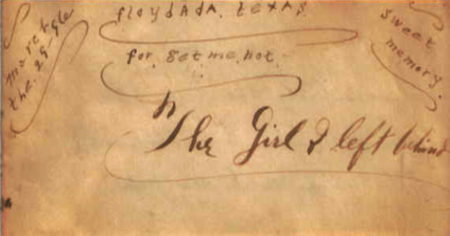 floydAdA. texas
for. get me. not.
sweet
memory.
the. 25
The Girl I left behind